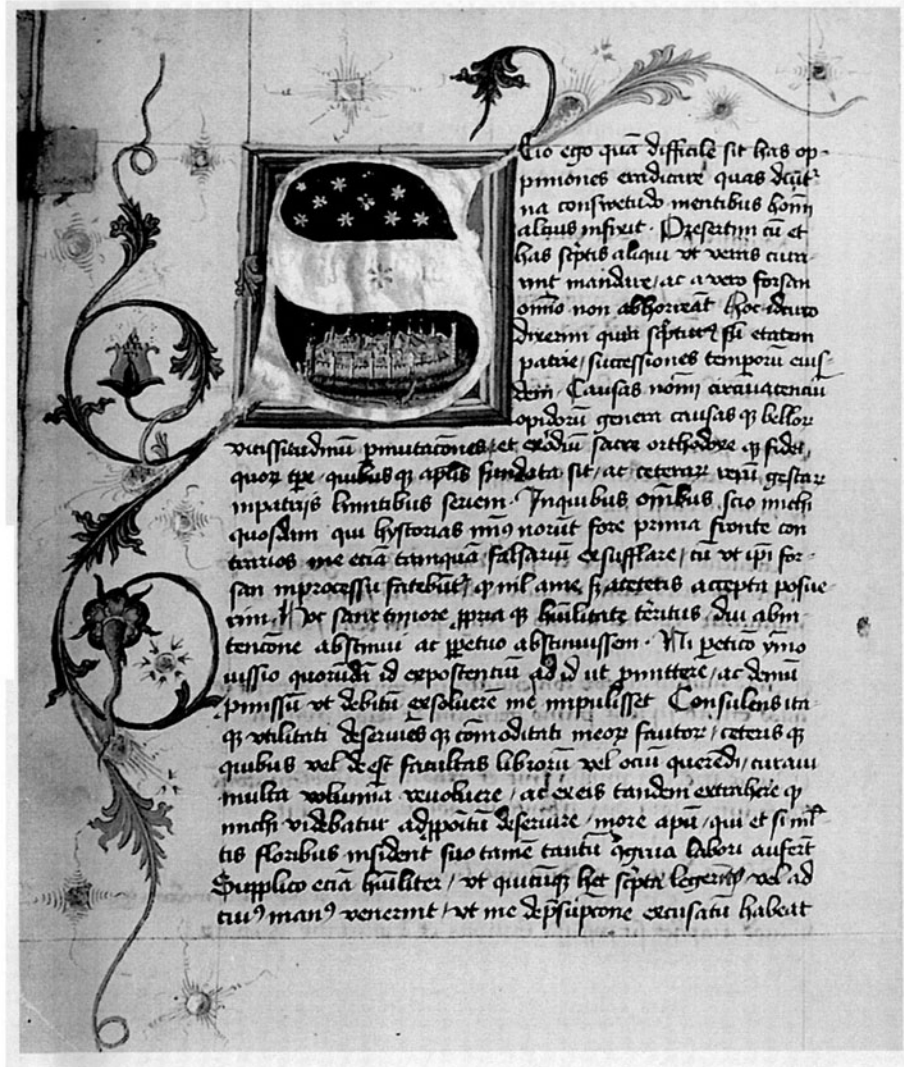 Scio ego quā difficile sit has op-
piniones eradicare quas diut͛-
na consuetudo mentibus homī
altius infixit. Presertim cū et
has sc͛ptis aliqui vt veras cura-
rint mandare / ac a vero forsan
omīo non abhorreāt Hoc idcirco
dixerim quia
patrie / successiones temporū eius-
dem. Causas nomī circūiacenciū
opidorū genera causas qꝫ belloꝝ
vicissitudinū pmutacōnes / et exordiū sacre orthodoxe qꝫ fidei,
quoꝝ tꝑe / quibus qꝫ aplīs fundata sit / ac ceteraꝝ rerū gestaꝝ
in patrijs limitibus seriem. In quibus omībus scio michi
quosdam qui hystorias minꝰ norūt fore prima fronte con
trarios me eciā tamquā falsariū exsufflare / cū vt ipī for-
san in processu fatebūt͛ / ꝙ nil a me sꝫ a ceteris accepta posue-
rim. Hoc sane timore ꝓpria qꝫ hūilitate territus diu ab in
tencone abstinui ac ꝑpetuo abstinuissem. Ni peticō ymo
iussio quorūdā id exposcenciū ad id vt pmittere / ac demū
pmissū vt debitū exsoluerē me impulisset Consulens ita-
qꝫ vtilitati deseruiēs qꝫ cōmoditati meoꝝ fautoꝝ / ceteris qꝫ
quibus vel deest facultas librorū vel ociū querēdi / curaui
multa volumīa reuoluere / ac ex eis tandem extrahere qꝫ
michi videbatur ad ꝓpoitū deseruire / more apū / qui et si ml̄-
tis floribus insident suo tamē tantū ꝯgrua labori auferūt
Supplico eciā hūiliter / vt quicūqꝫ hec sc͛pta legerint vel ad
cuiꝰ manꝰ venerint / vt me de p̄sūpcōne excusatū habeāt